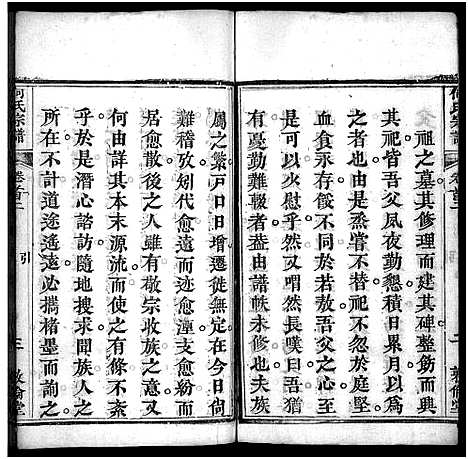 祖之墓其修理而建其碑整飭而興
其祀皆吾父夙夜勤懇積日累月以爲
之者也由是烝嘗不替於祀不忽於庭堅
血食永存餒不同於若敖吾父之心
可以無憾矣然猶時喟然長嘆曰吾人
有憂勤難輟者蓋由譜帙未修也夫族
屬之繁戸口日增遷徙無定在今日尙
難稽攷矧代愈遠而迹愈湮支愈紛而
居愈散後之人雖有敬宗收族之意
何由詳其本末源流而使之有條不紊
乎於是潛心諮訪隨地搜求間經之
所在不計道途遙遠必揣楮墨而詢之
何氏宗譜
卷首二
引
三
敦倫堂
何氏宗譜
卷首二
敦倫堂